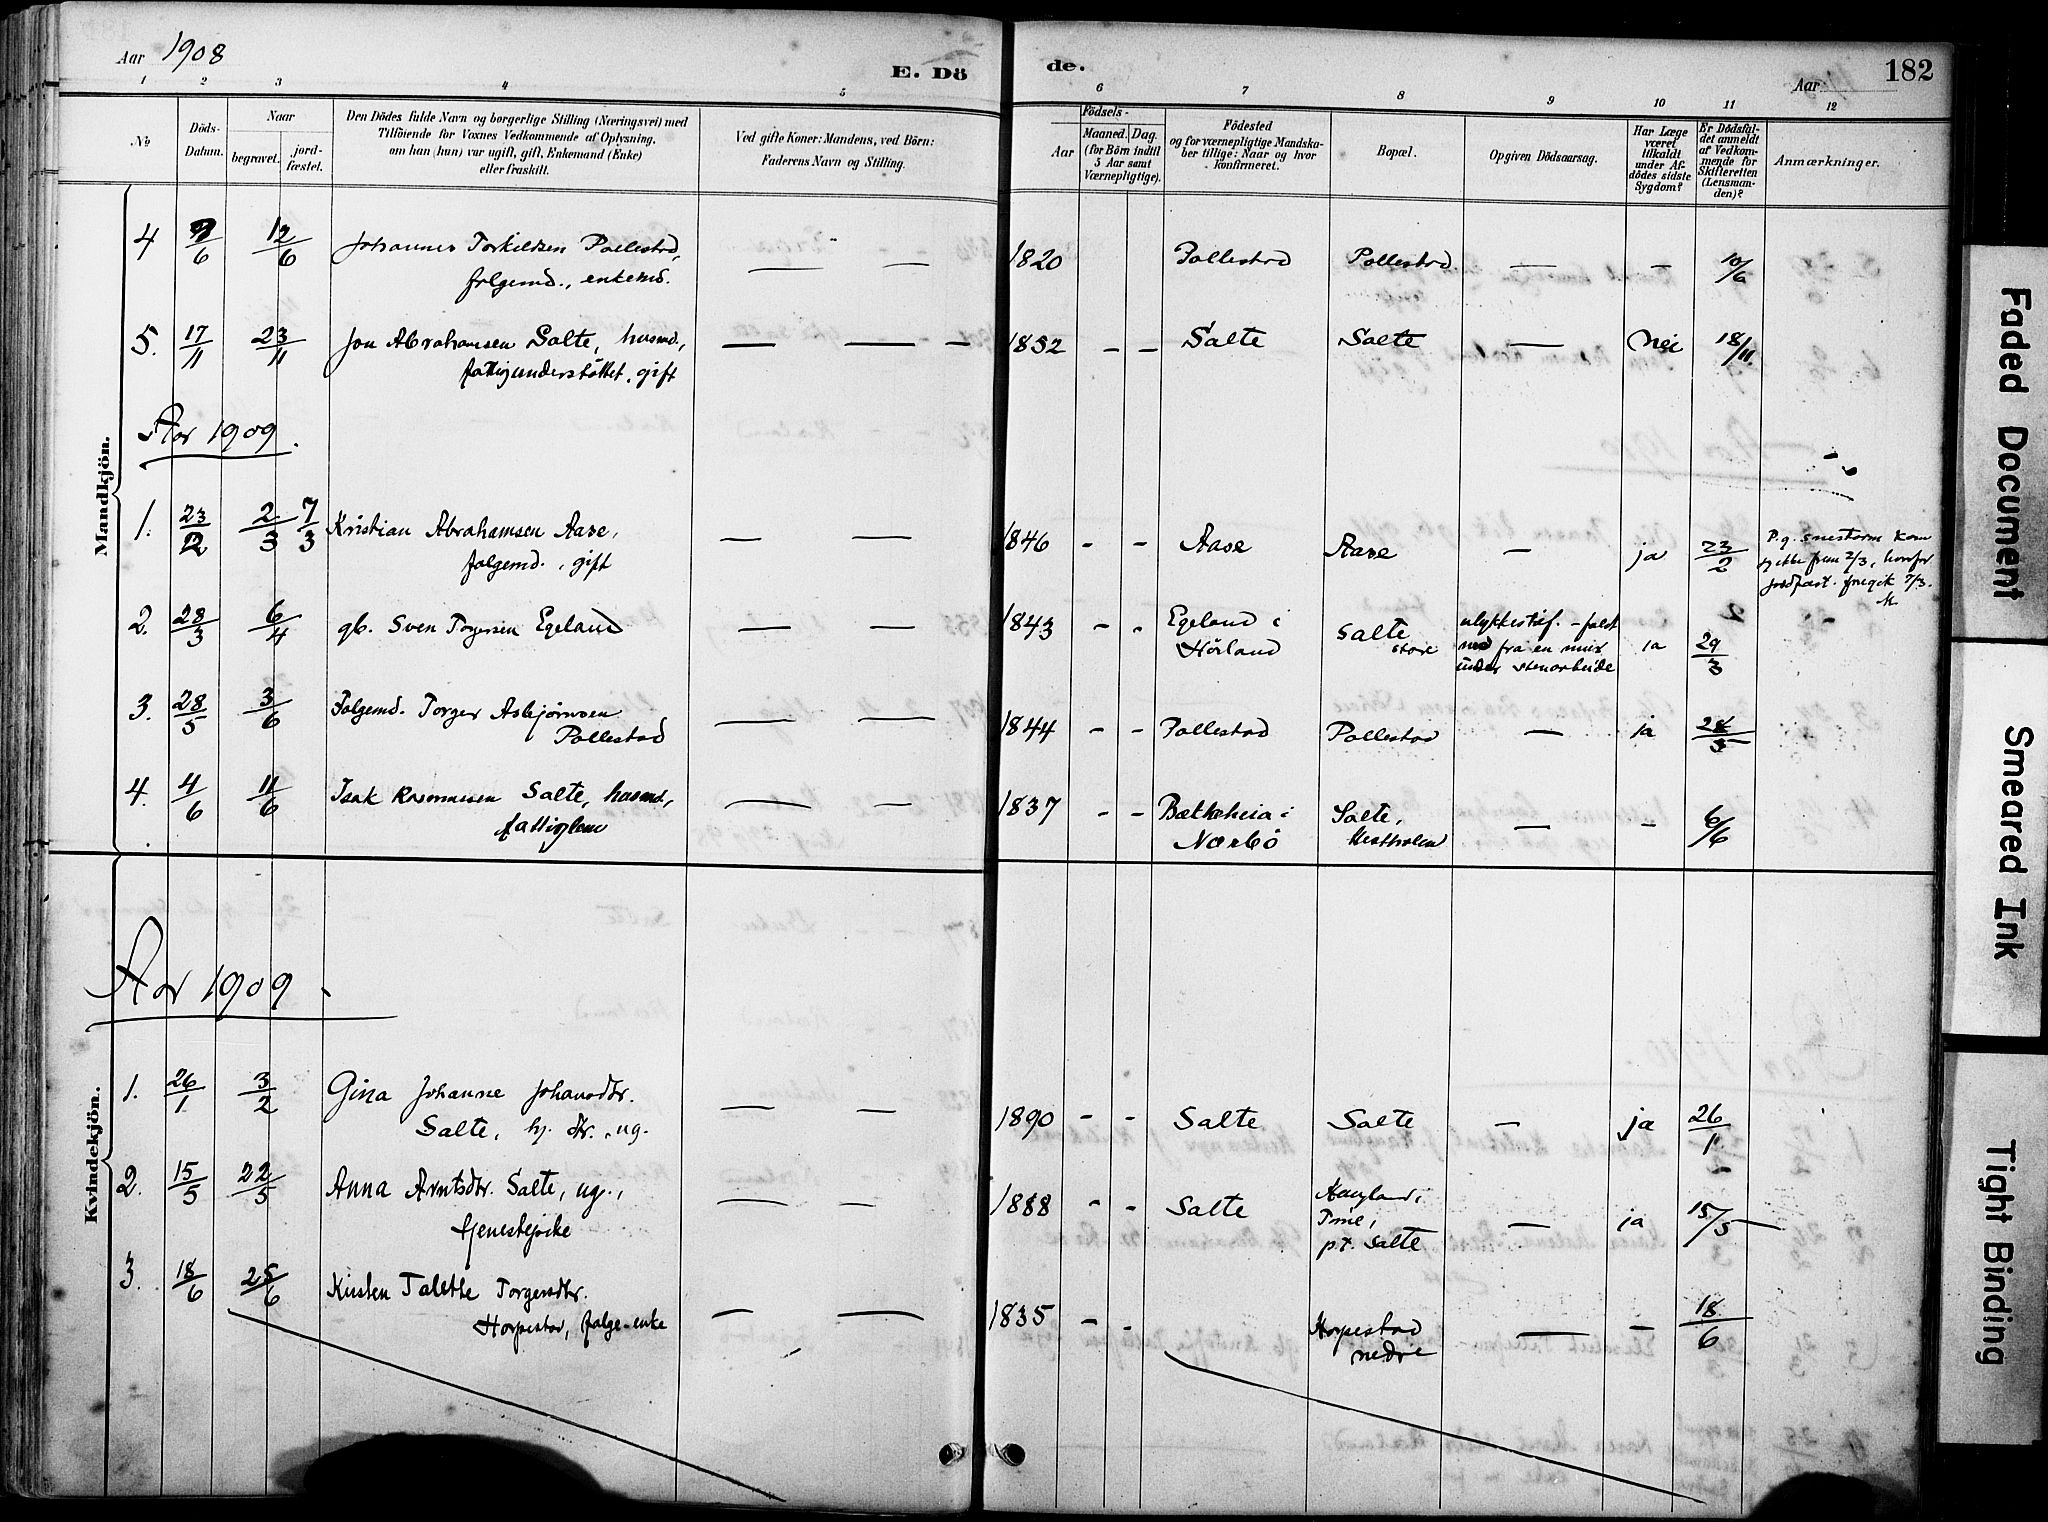 Aar 1908
E. Dö
de.
Aar
182
1 2 3 4 5
6 7 8 9 10 11 12
No
Döds-
Datum.
Naar
begravet.
jord-
fæstet.
Den Dödes fulde Navn og borgerlige Stilling (Næringsvei) med
Tilföiende för Voxnes Vedkommende af Oplysning,
om han (hun) var ugift, gift, Enkemand (Enke)
eller fraskilt.
Ved gifte Koner: Mandens, ved Börn:
Faderens Navn og Stilling.
Födsels-
Aar
Maaned. Dag.
(for Börn indtil
5 Aar samt
Værnepligtige).
Födested
og for værnepligtige Mandska-
ber tillige: Naar og hvor
konfirmeret.
Bopæl.
Opgiven Dödsaarsag.
Har Læge
været
tilkaldt
under Af-
dödes sidste
Sygdom?
Er Dödsfal-
det anmeldt
af Vedkom-
mende for
Skifteretten
(Lensman-
den)?
Anmærkninger.
Mandkjön.
4 9/6 12/6 Johannes Torkildsen Pollestad, — — 1820 Pollestad Pollestad — — 10/6
folgemd., enkemd.
5. 17/11 23/11 Jon Abrahamsen Salte, husmd., — — — 1852 - - Salte Salte — Nei 18/11
fattigunderstöttet, gift
Aar 1909.
1. 23/2 2/3 7/3 Kristian Abrahamsen Aase, — — 1846 - - Aase Aase — ja 23/2 P.g. snestorm kom
folgemd., gift
ikke frem 2/3, hvorfor
jordfæst. foregik 7/3.
2. 28/3 6/4 gb. Sven Torgersen Egeland — — 1843 - - Egeland i Salte ulykkestilf. - faldt ja 29/3
Hörland store ned fra en mur
under stenarbeide
3. 28/5 3/6 Folgemd. Torger Asbjörnsen — — 1844 - - Pollestad Pollestad — ja 28/5
Pollestad
4. 4/6 11/6 Isak Rasmussen Salte, husmd., — — 1837 - - Bækkeheia i Salte, — - 6/6
fattiglem Nærbö
Kvindekjön.
Aar 1909.
1. 26/1 3/2 Gina Johanne Johansdtr. — — 1890 - - Salte Salte — ja 26/1
Salte, hj. dtr., ug.
2. 15/5 22/5 Anna Arntsdtr. Salte, ug., — — 1888 - - Salte Haugland, — ja 15/5
tjenestepike Time,
p.t. Salte
3. 18/6 25/6 Kirsten Talette Torgersdtr. — — 1835 - - Horpestad — — 18/6
Horpestad, folge-enke nedre
Faded Document
Smeared Ink
Tight Binding